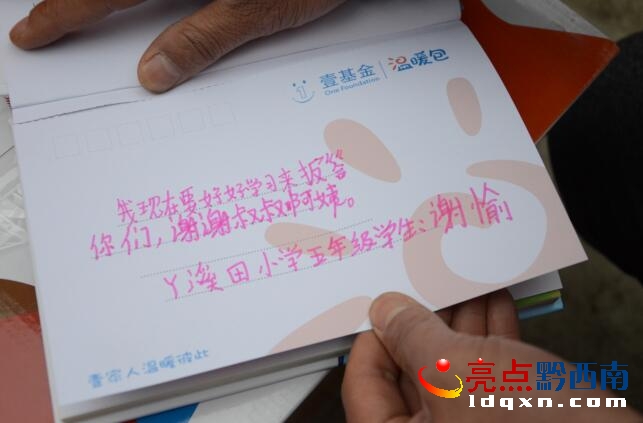 壹基金 温暖包
One Foundation
我现在要好好学习来报答
你们，谢谢叔叔啊姨。
丫溪田小学五年级学生：谢愉
壹家人温暖彼此
亮点黔西南
ldqxn.com